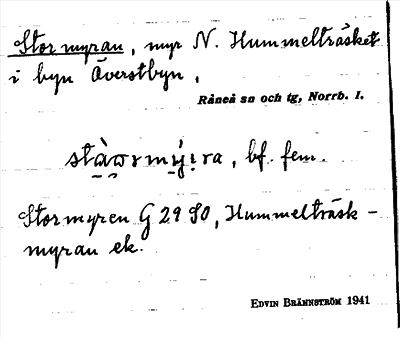 Stormyran, myr N. Hummelträsket
i byn Överstbyn,
Råneå sn och tg, Norrb. l.
bf. fem.
Stormyren G 29 SO, Hummelträsk-
myran ek.
EDVIN BRÄNNSTRÖM 1941